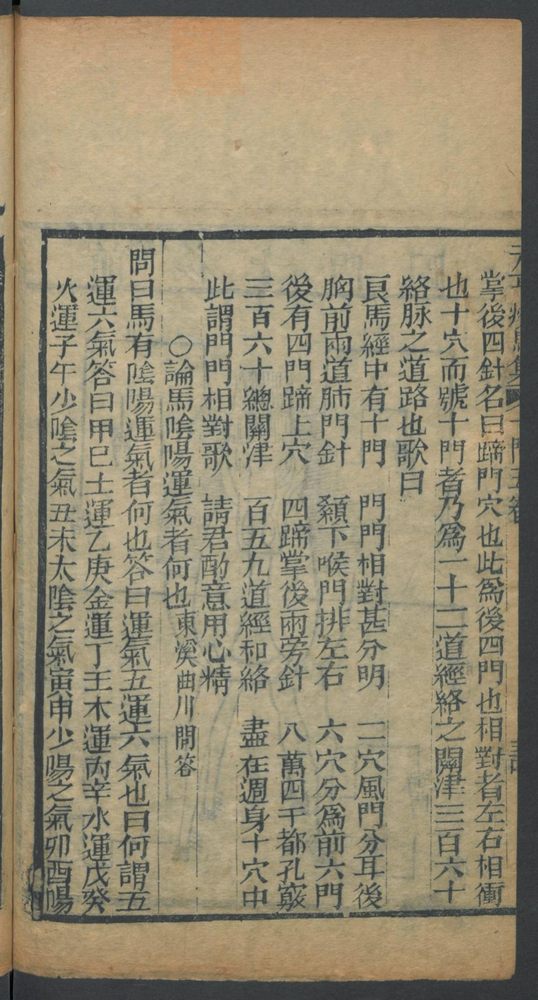 掌後四針名曰蹄門穴也此爲後四門也相對者左右相衝
也十穴而號十門者乃爲一十二道經絡之關津三百六十
絡脉之道路也歌曰
良馬經中有十門 門門相對甚分明 二穴風門分耳後
胸前兩道肺門針 顙下喉門排左右 六穴分爲前六門
後有四門蹄上穴 四蹄掌後兩旁針 八萬四千都孔竅
三百六十總關津 百五九道經和絡 盡在週身十穴中
此謂門門相對歌 請君酌意用心精
○論馬陰陽運氣者何也東溪曲川問答
問曰馬有陰陽運氣者何也答曰運氣五運六氣也曰何謂五
運六氣答曰甲巳土運乙庚金運丁壬木運丙辛水運戊癸
火運子午少陰之氣丑未太陰之氣寅申少陽之氣卯酉陽